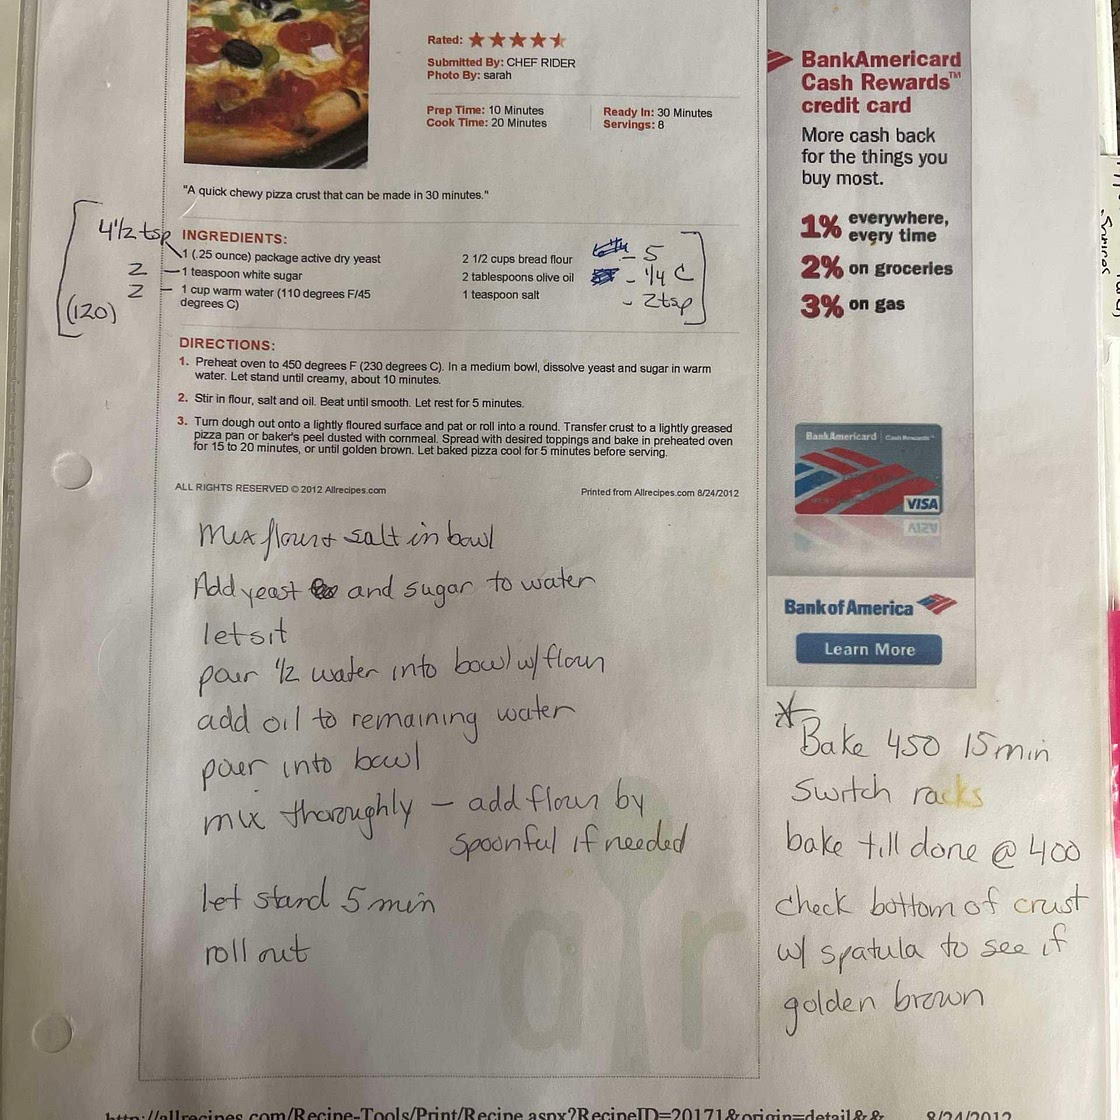 Rated:
Submitted By: CHEF RIDER
Photo By: sarah
Prep Time: 10 Minutes
Cook Time: 20 Minutes
Ready In: 30 Minutes
Servings: 8
"A quick chewy pizza crust that can be made in 30 minutes."
INGREDIENTS:
4 1/2 tsp
1 (.25 ounce) package active dry yeast
2
1 teaspoon white sugar
2
1 cup warm water (110 degrees F/45
degrees C)
(120)
2 1/2 cups bread flour
- 5
2 tablespoons olive oil
- 1/4 C
1 teaspoon salt
- 2tsp
DIRECTIONS:
1. Preheat oven to 450 degrees F (230 degrees C). In a medium bowl, dissolve yeast and sugar in warm
water. Let stand until creamy, about 10 minutes.
2. Stir in flour, salt and oil. Beat until smooth. Let rest for 5 minutes.
3. Turn dough out onto a lightly floured surface and pat or roll into a round. Transfer crust to a lightly greased
pizza pan or baker's peel dusted with cornmeal. Spread with desired toppings and bake in preheated oven
for 15 to 20 minutes, or until golden brown. Let baked pizza cool for 5 minutes before serving.
ALL RIGHTS RESERVED © 2012 Allrecipes.com
Printed from Allrecipes.com 8/24/2012
Mix flour + salt in bowl
Add yeast and sugar to water
let sit
pour 1/2 water into bowl w/ flour
add oil to remaining water
pour into bowl
mix thoroughly - add flour by
spoonful if needed
let stand 5 min
roll out
ar
BankAmericard
Cash Rewards™
credit card
More cash back
for the things you
buy most.
1% everywhere,
every time
2% on groceries
3% on gas
BankAmericard Cash Rewards™
VISA
Bank of America
Learn More
* Bake 450 15 min
switch racks
bake till done @ 400
check bottom of crust
w/ spatula to see if
golden brown
http://allrecipes.com/Recipe-Tools/Print/Recipe.aspx?RecipeID=20171&origin=detail&&
8/24/2012